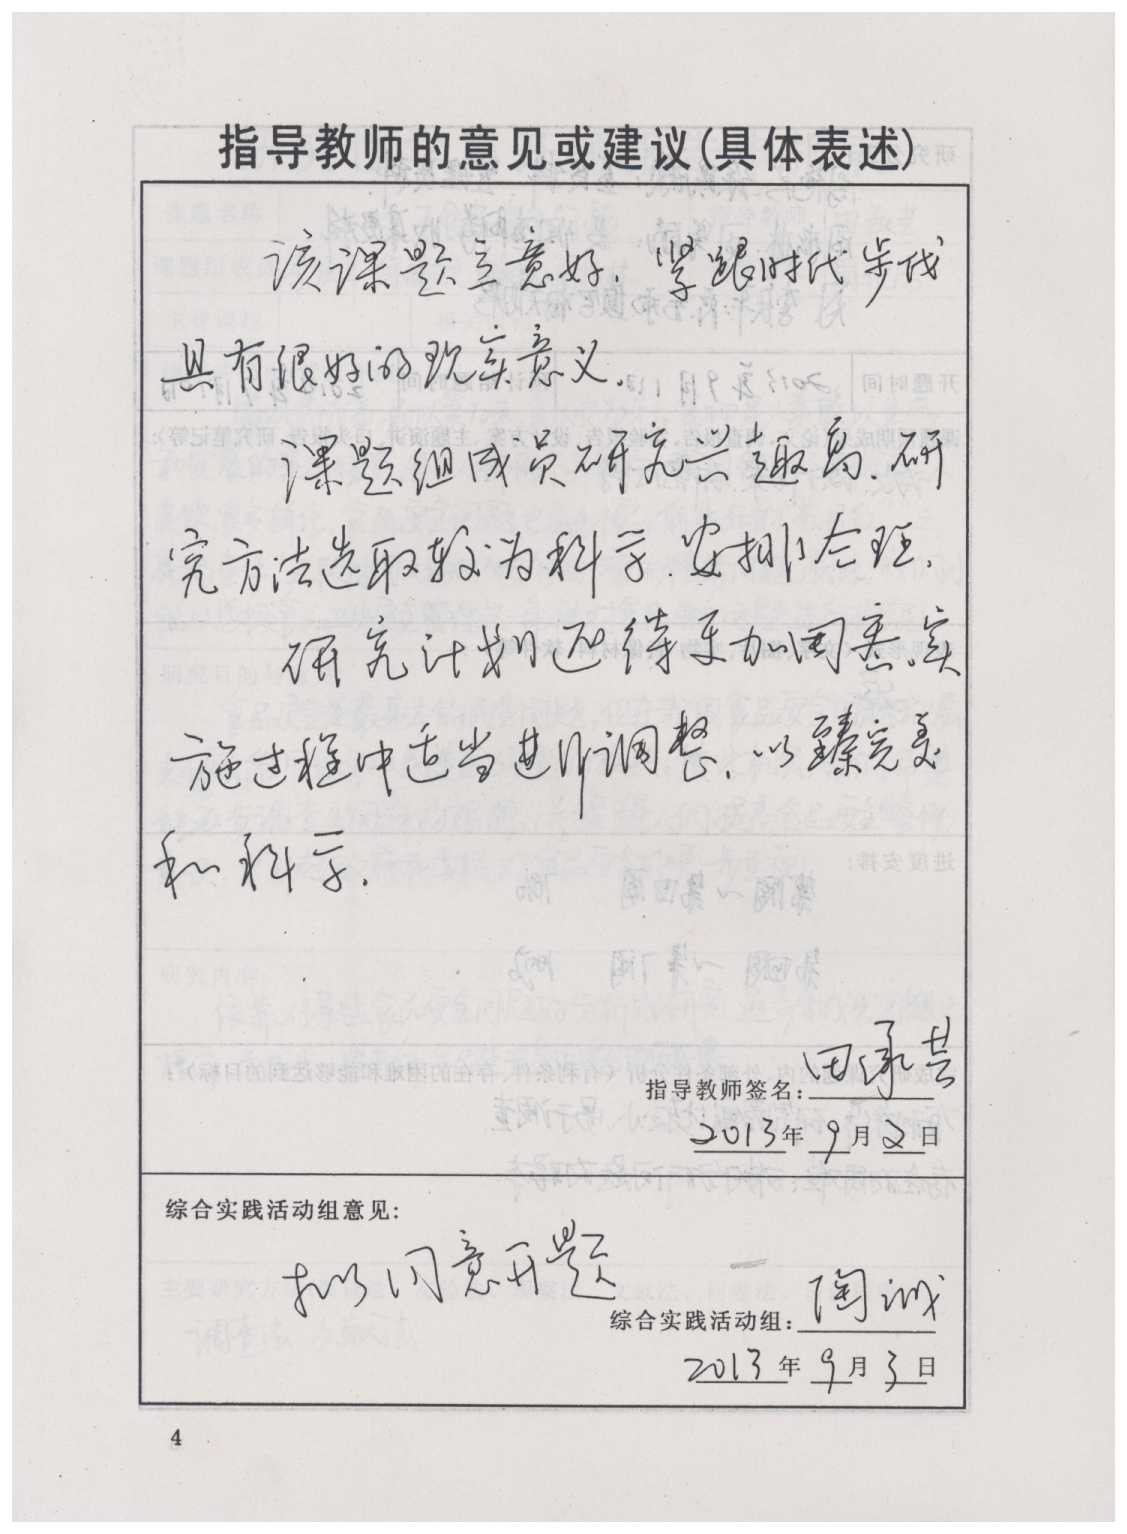 指导教师的意见或建议(具体表述)
该课题立意好．紧跟时代步伐
具有很好的现实意义．
课题组成员研究兴趣高．研
究方法选取较为科学．安排合理．
研究计划还待更加周悉．实
施过程中适当进行调整．以臻完美
和科学．
指导教师签名：田承芸
2013年9月2日
综合实践活动组意见:
拟同意开题
综合实践活动组：陶诚
2013年9月3日
4